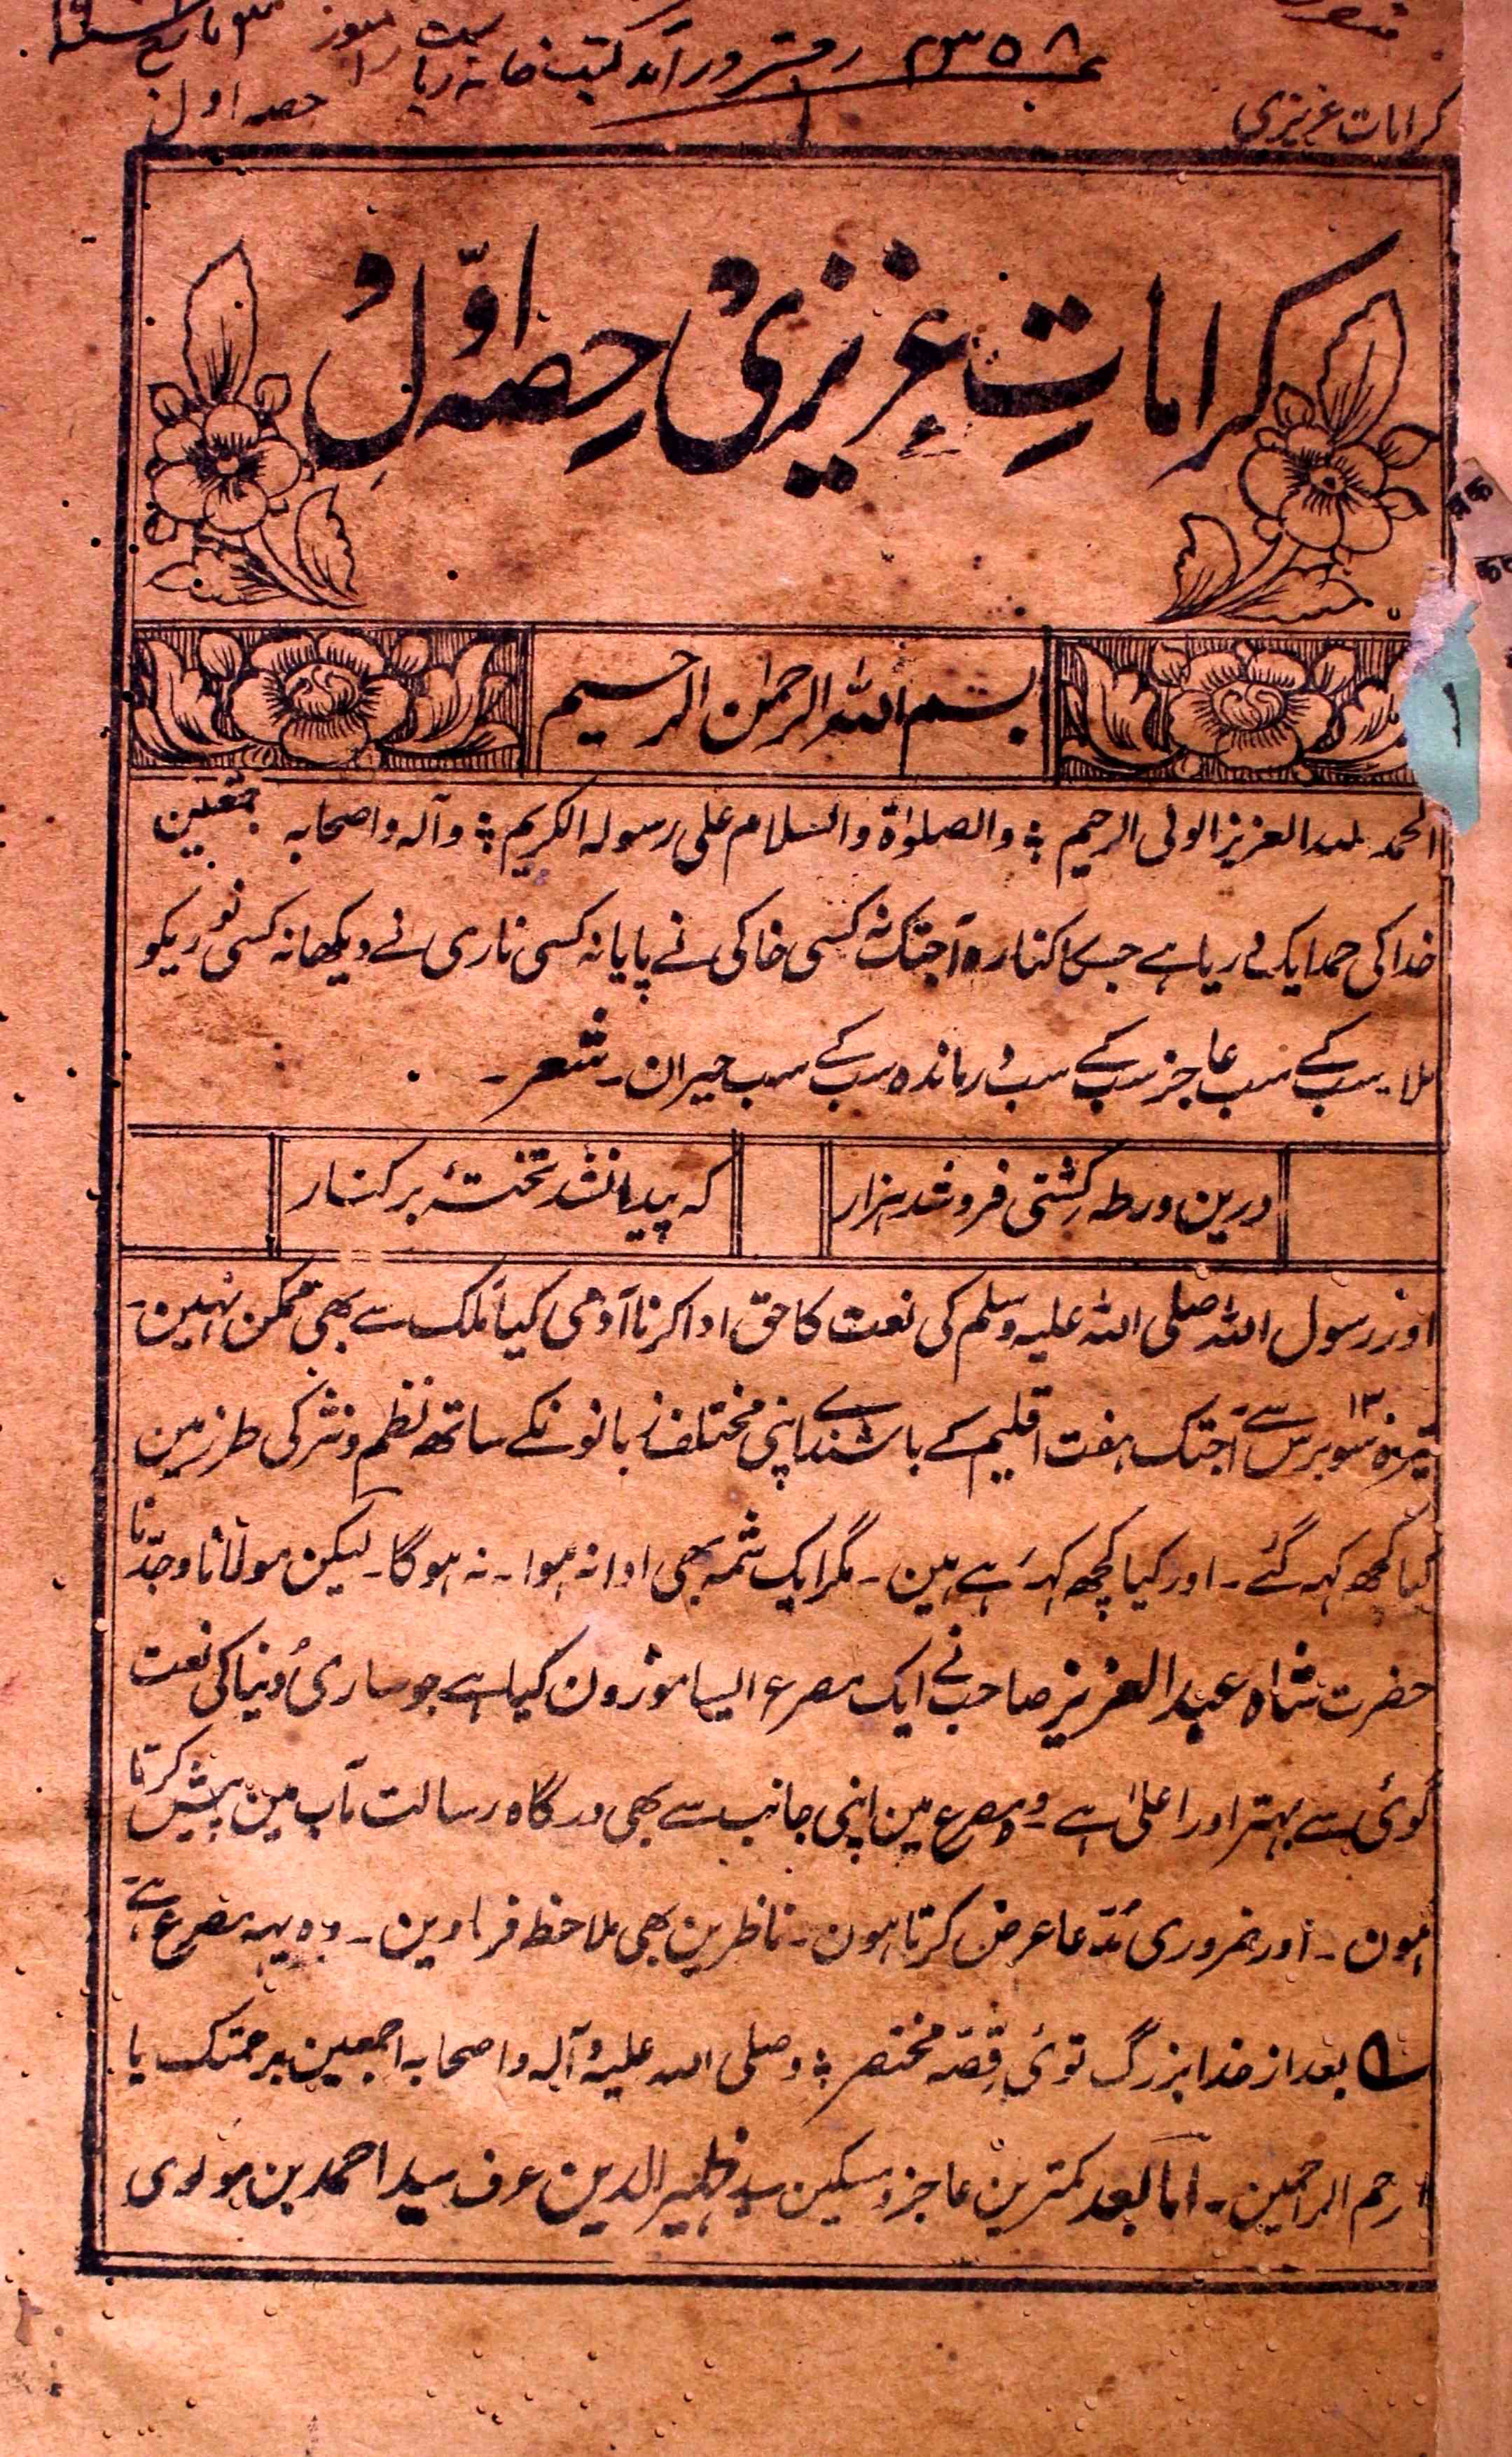 کرامات عزیزی
حصہ اول
کراماتِ عزیزی حصہ اوّل
بسم اللہ الرحمٰن الرحیم
الحمد للہ العزیز الولی الرحیم ؛ والصلوٰۃ والسلام علی رسولہ الکریم ؛ وآلہ واصحابہ اجمعین
خدا کی حمد ایک دریا ہے جسکا کنارہ آجتک نہ کسی خاکی نے پایا نہ کسی ناری نے دیکھا نہ کسی نوریکو
ملا۔ سب کے سب عاجز سب کے سب درماندہ سب کے سب حیران۔ شعر۔
درین ورطہ کشتی فروشد ہزار
کہ پیدا نشد تختۂ بر کنار
اور رسول اللہ صلی اللہ علیہ وسلم کی نعت کا حق ادا کرنا آدمی کیا مَلک سے بھی ممکن نہین۔
تیرہ ۱۳ سو برس سے آجتک ہفت اقلیم کے باشندے اپنی مختلف زبانونکے ساتھ نظم و نثر کی طرز مین
کیا کچھ کہہ گئے۔ اور کیا کچھ کہہ رہے ہین۔ مگر ایک شمہ بھی ادا نہ ہوا۔ نہ ہوگا۔ لیکن مولانا وجدّنا
حضرت شاہ عبد العزیز صاحب نے ایک مصرع ایسا موزون کیا ہے جو ساری دُنیا کی نعت
گوئی سے بہتر اور اعلیٰ ہے۔ وہ مصرع مین اپنی جانب سے بھی درگاہ رسالت مآب مین پیش کرتا
ہون۔ اور ضروری مُدّعا عرض کرتا ہون۔ ناظرین بھی ملاحظہ فرماوین۔ وہ یہہ مصرع ہے
بعد از خدا بزرگ توئی قصّہ مختصر ؛ وصلی اللہ علیہ وآلہ واصحابہ اجمعین برحمتک یا
ارحم الراحمین۔ اما بعد کمترین عاجز و مسکین سید ظہیر الدین عرف سید احمد بن مولوی